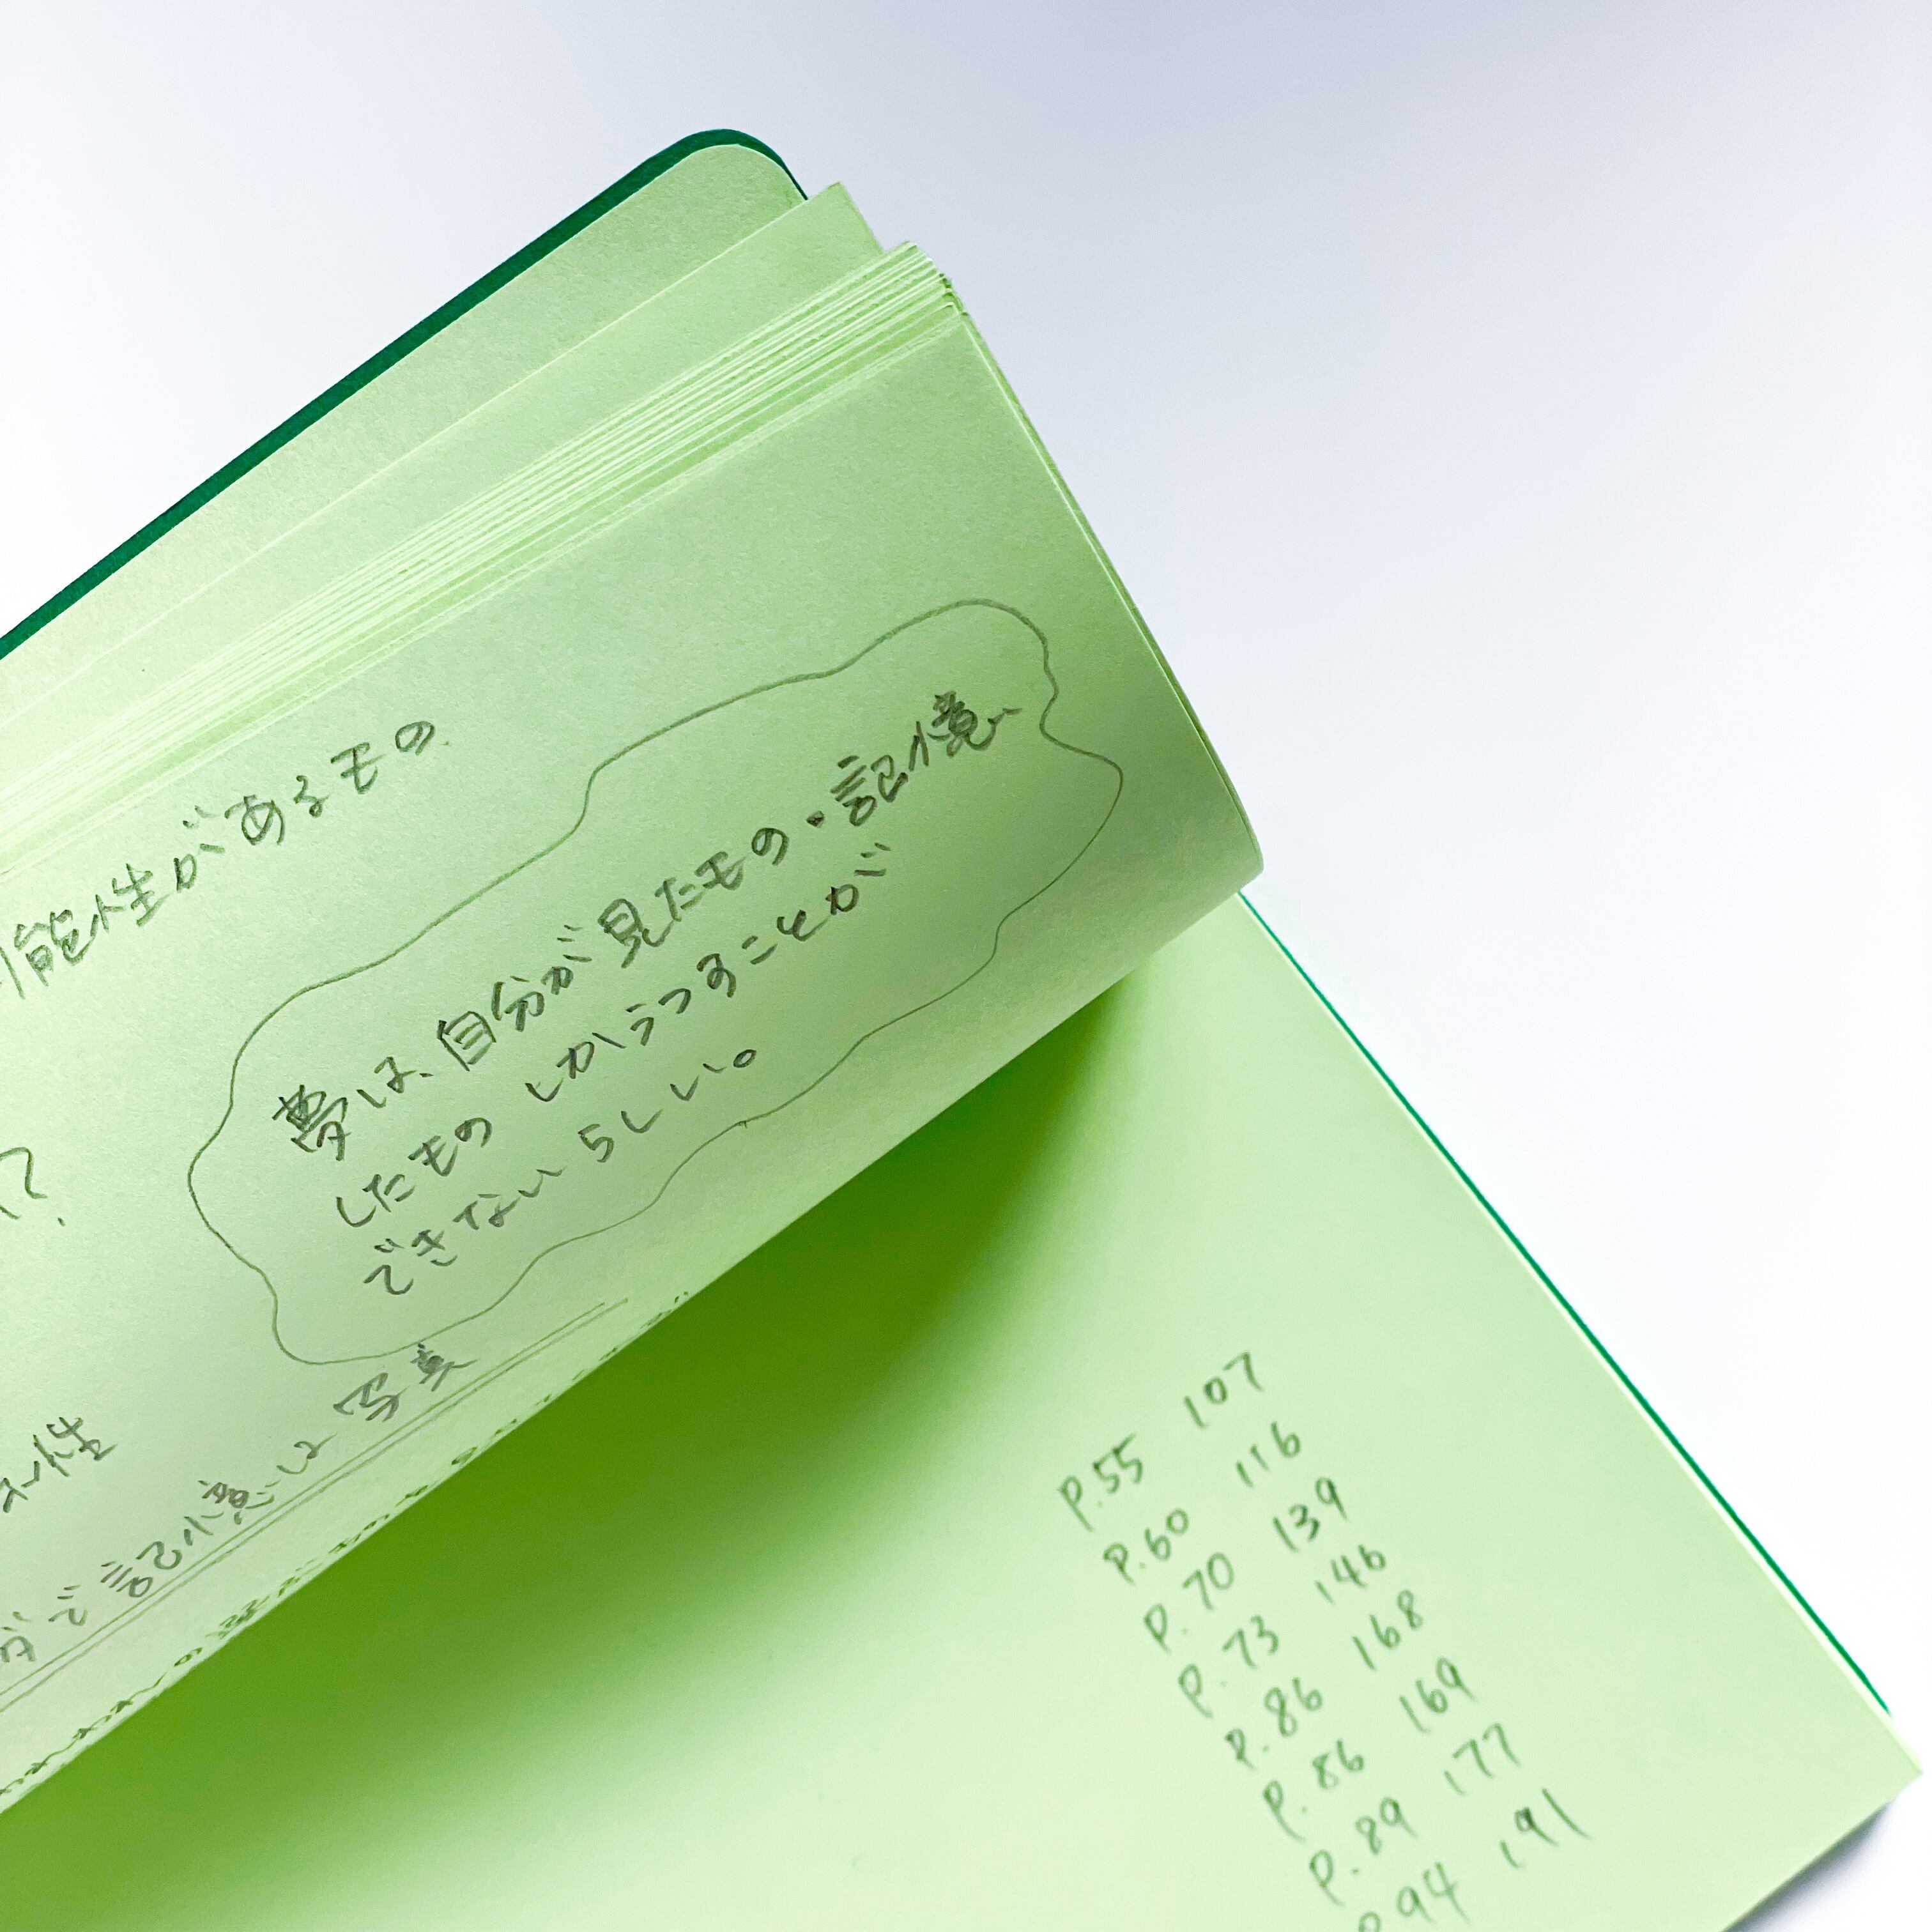 能性があるもの
夢は、自分が見たもの・記憶
したものしかうつすことが
できないらしい。
?
性
で記憶は写真
P.55 107
P.60 116
P.70 139
P.73 146
P.86 168
P.86 169
P.89 177
P.94 191